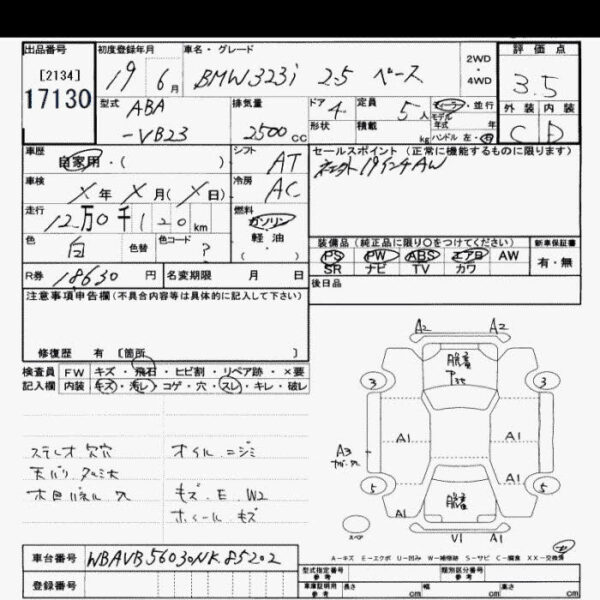 出品番号 初度登録年月 車名・グレード 2WD・4WD 評価点
[2134] 19 6月 BMW323i 2.5 ベース 3.5
17130 型式 ABA-VB23 排気量 2500cc ドア 4 定員 5人 ディーラー・並行
形状 積載 kg モデル年式 年 ハンドル 左・右 外装 内装
C D
車歴 自家用・( ) シフト AT セールスポイント(正常に機能するものに限ります)
車検 X年X月(X日) 冷房 AC 社外19インチAW
走行 12万0千120km 燃料 ガソリン 軽油 ・( )
色 白 色替 色コード ? 装備品(純正品に限り○をつけてください) 新車保証書
PS PW ABS エアB AW 有・無
SR ナビ TV カワ
R券 18630円 名変期限 月 日 後日品
注意事項申告欄(不具合内容等は具体的に記入して下さい)
修復歴 有 〔箇所 〕
検査員 FW キズ・飛石・ヒビ割・リペア跡・×要
記入欄 内装 キズ・汚レ・コゲ・穴・スレ・キレ・破レ
A2 A2
3 3
ステレオ欠穴 オイルニジミ
天バリ タルミ大
木目パネル 穴 キズ.E.W2
ホイールキズ
A1 A1
A3
A1 A1
5 5
A1 V1 A1
スペア
A-キズ E-エクボ U-凹み W-補修跡 S-サビ C-腐食 XX-交換済
車台番号 WBAVB56030NK85202 型式指定番号 参考 類別区分番号 参考
登録番号 車庫証明用 参考 長さ cm 幅 cm 高さ cm